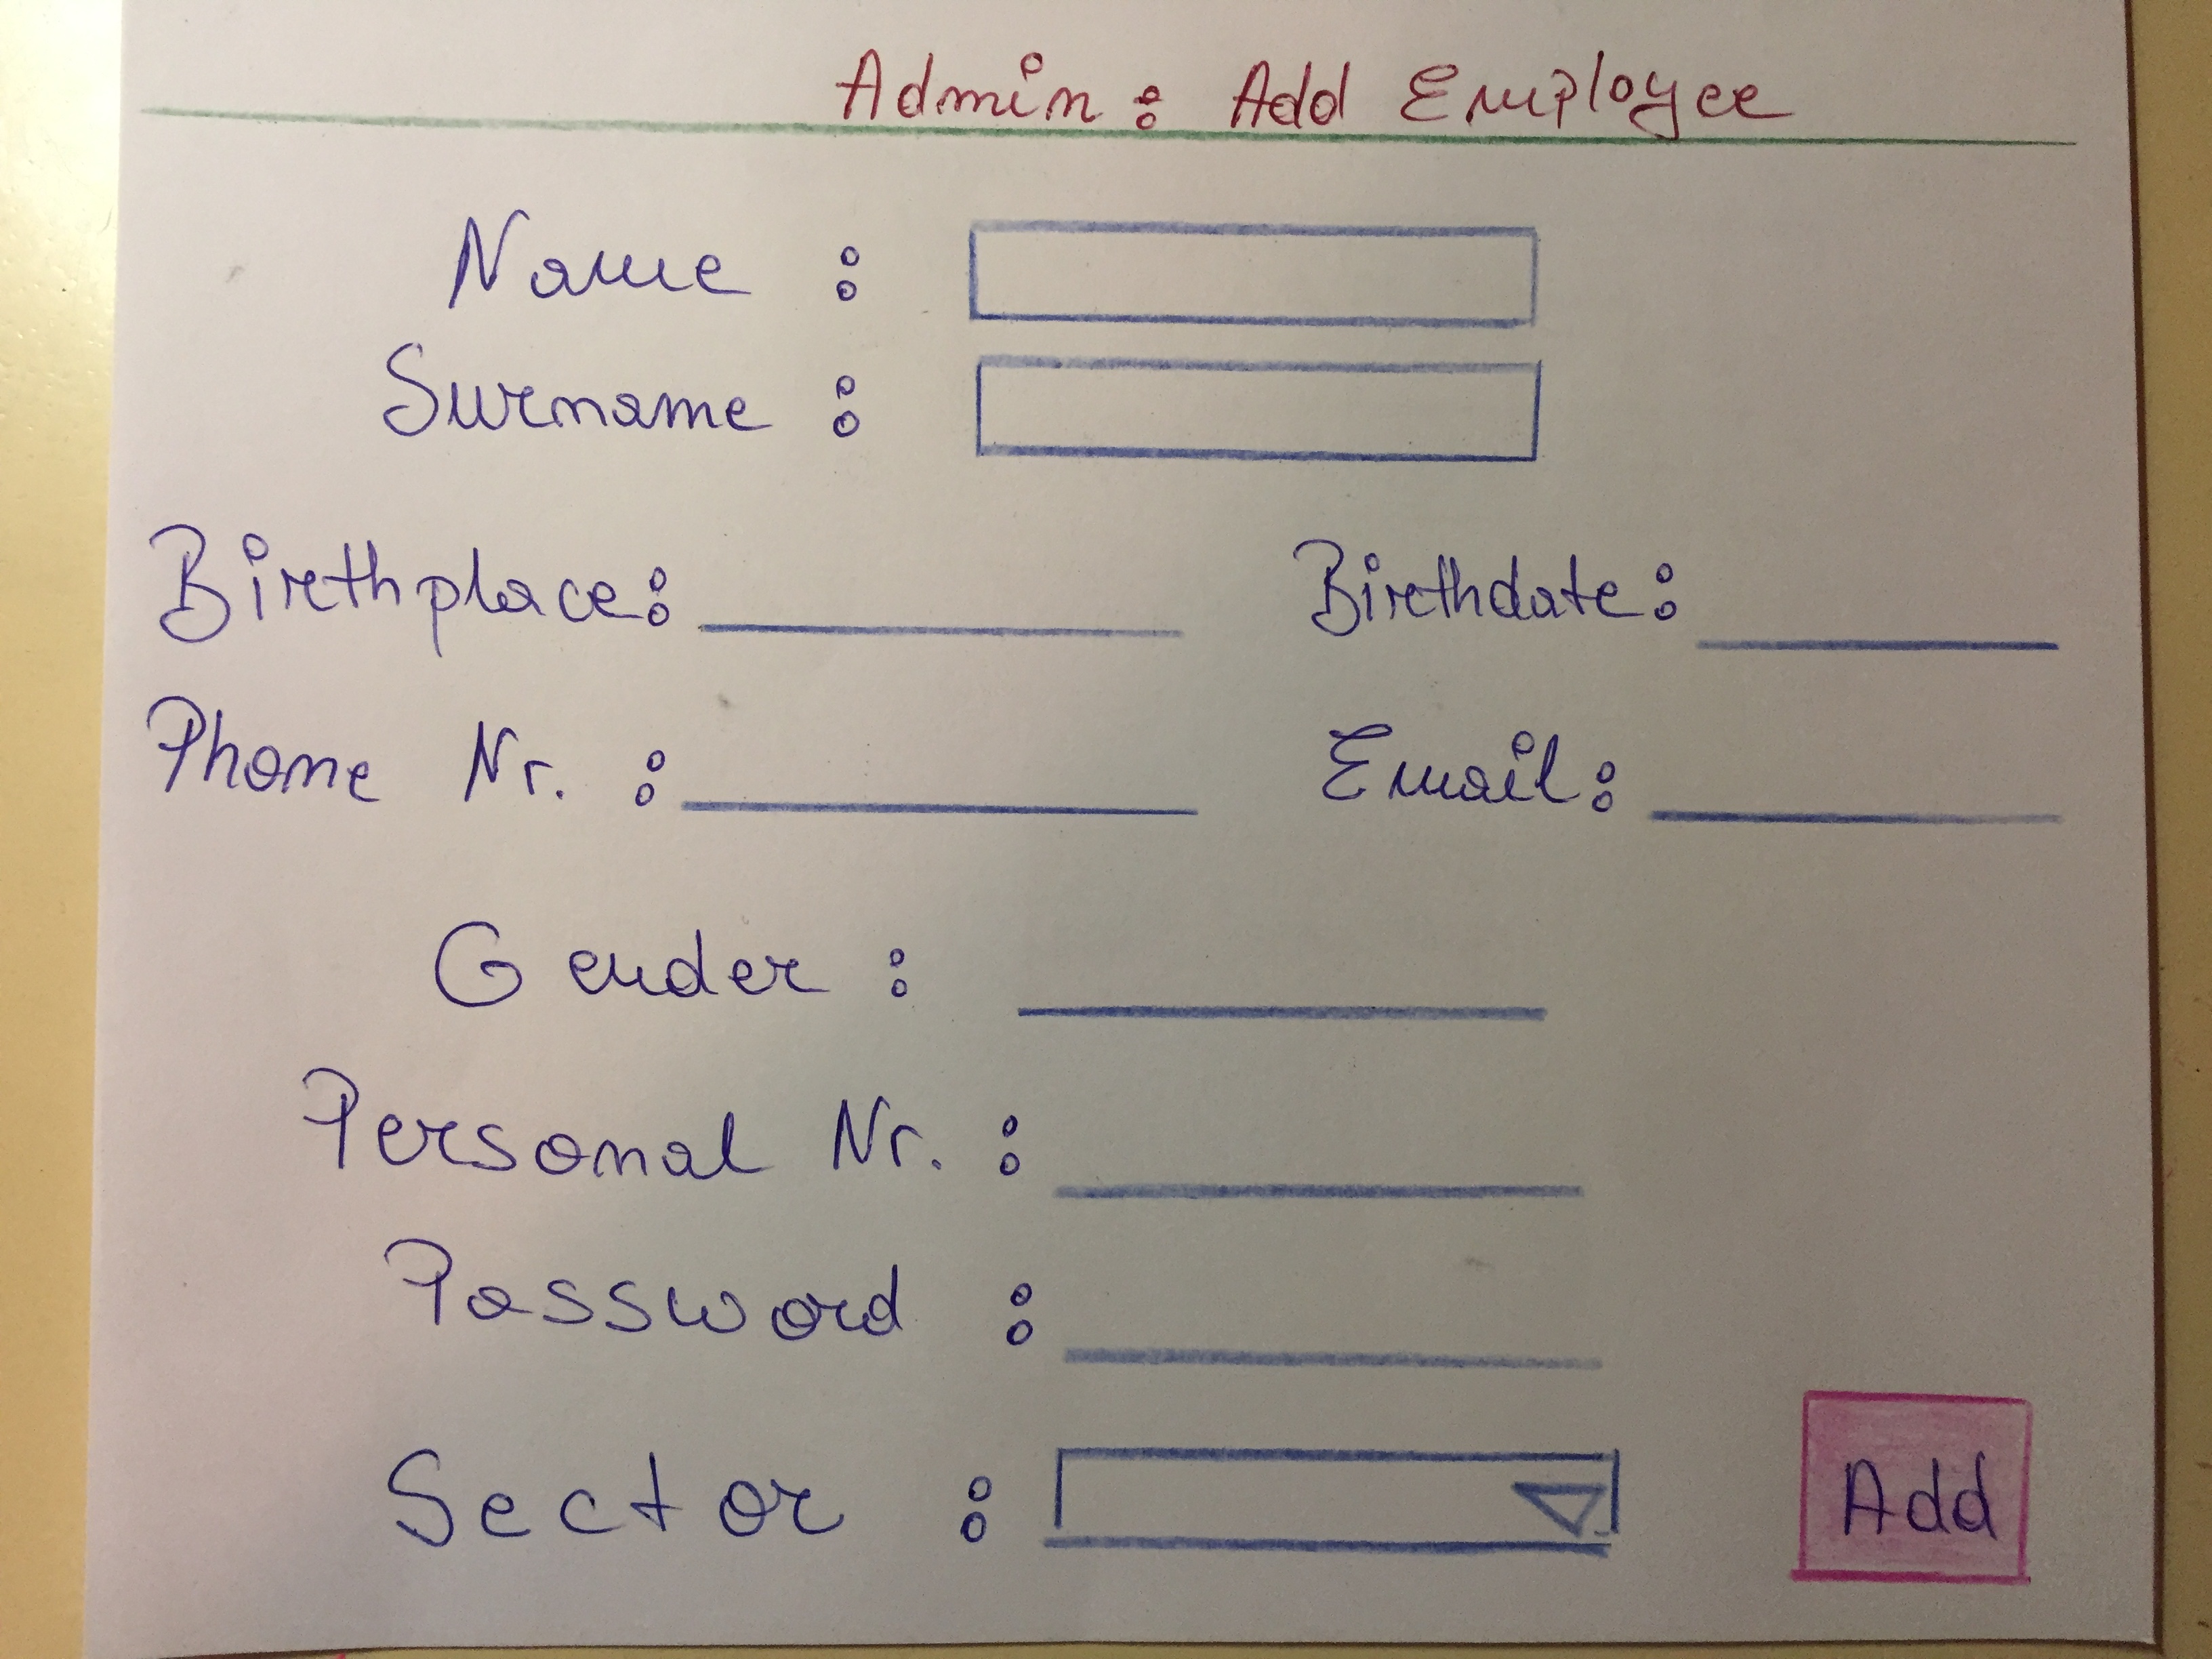 Admin: Add Employee
Name :
Surname :
Birthplace: Birthdate:
Phone Nr. : Email:
Gender :
Personal Nr. :
Password :
Sector :
Add